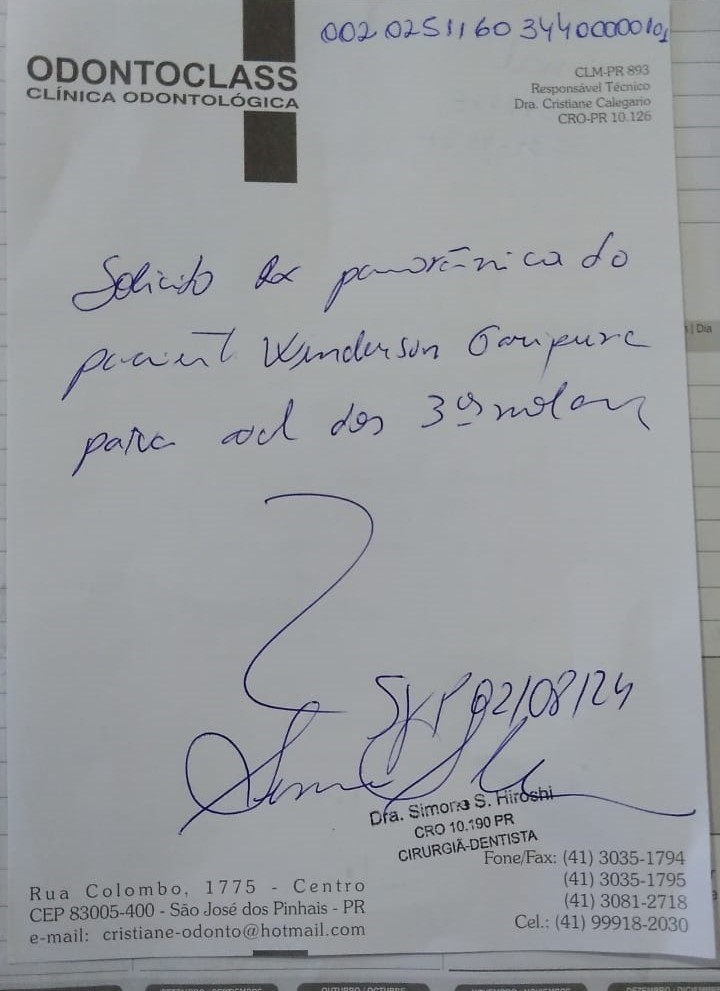 002 0251160 3440000010
ODONTOCLASS
CLÍNICA ODONTOLÓGICA
CLM-PR 893
Responsável Técnico
Dra. Cristiane Calegario
CRO-PR 10.126
Solicito Rx panorâmica do
pacient Wenderson
para avl dos 3ºs molares
SJP 02/08/24
Dra. Simone S. Hiroshi
CRO 10.190 PR
CIRURGIÃ-DENTISTA
Fone/Fax: (41) 3035-1794
(41) 3035-1795
(41) 3081-2718
Cel.: (41) 99918-2030
Rua Colombo, 1775 - Centro
CEP 83005-400 - São José dos Pinhais - PR
e-mail: cristiane-odonto@hotmail.com
Dia
SETEMBRO / SEPTIEMBRE
OUTUBRO / OCTUBRE
NOVEMBRO / NOVIEMBRE
DEZEMBRO / DICIEMBRE